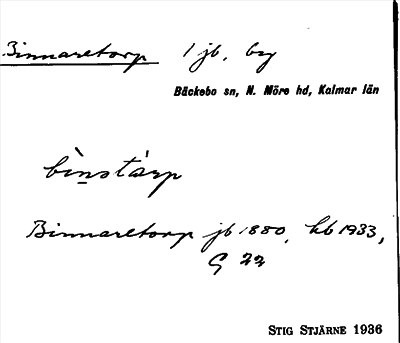 Binnaretorp 1 jb, by
Bäckebo sn, N. Möre hd, Kalmar län
bìn̲stàrp
Binnaretorp jb 1880, hb 1933,
G 22
STIG STJÄRNE 1936